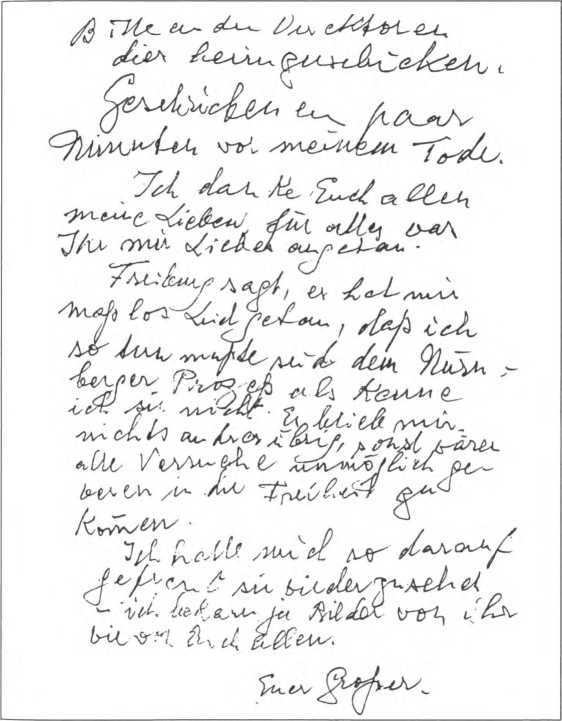 Bitte an die Direktoren
dies heimzuschicken.
Geschrieben ein paar
Minuten vor meinem Tode.
Ich danke Euch allen
meine Lieben, für alles was
Ihr mir Liebes angetan.
Freiburg sagt, es hat mir
maßlos Leid getan, daß ich
so tun mußte seit dem Nürn-
berger Prozeß als kenne
ich sie nicht. Es blieb mir
nichts andres übrig, sonst wären
alle Versuche unmöglich ge-
wesen in die Freiheit zu
kom̄en.
Ich hatte mich so darauf
gefreut sie wiederzusehen
– ich bekam ja Bilder von ihr
wie von Euch allen.
Euer Großer.